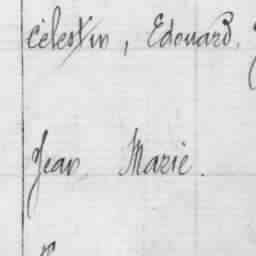 Célestin, Edouard.
Jean Marie.